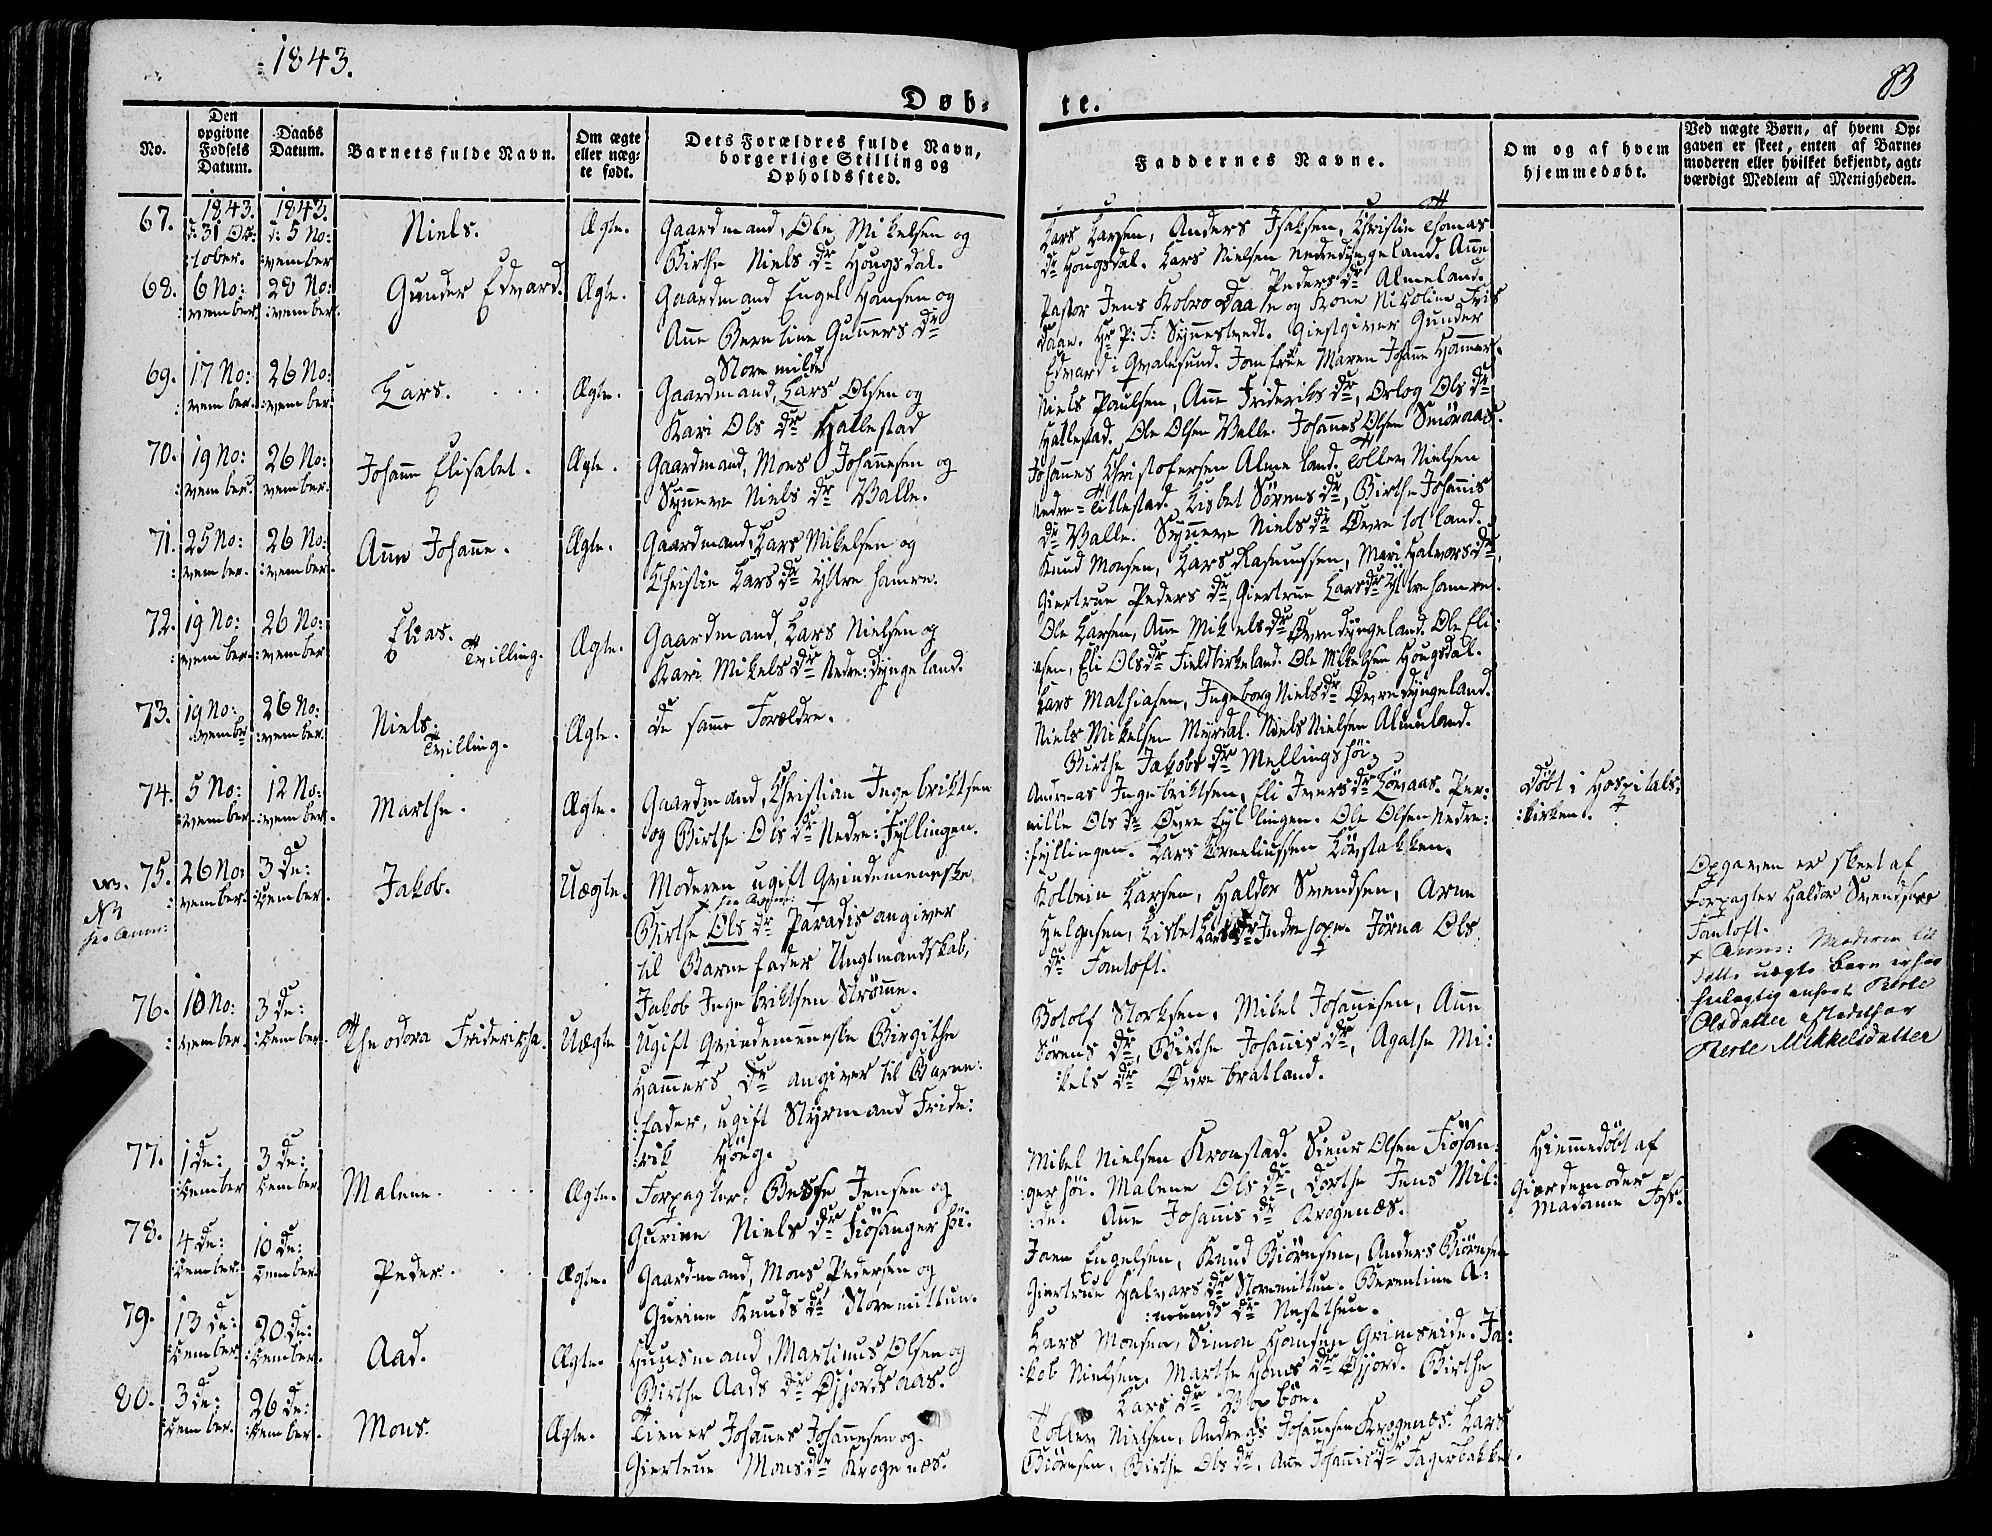 :1843.
83
Døb-
te.
No.
Den opgivne Fødsels Datum.
Daabs Datum.
Barnets fulde Navn.
Om ægte eller næg-te født.
Dets Forældres fulde Navn, borgerlige Stilling og Opholdssted.
Faddernes Navne.
Om og af hvem hjemmedøbt.
Ved nægte Børn, af hvem Op-
gaven er skeet, enten af Barne-
moderen eller hvilket bekjendt, agt-
værdigt Medlem af Menigheden.
1843.
1843.
67.
d: 31 Oc:
:tober.
d: 5 No:
:vember
Niels.
Ægte.
Gaardmand, Ole Mikelsen og
Birthe Niels dr Hougsdal.
Lars Larsen, Anders Isaksen, Christin Thomas
dr Hougsdal. Lars Nielsen Nedredyngeland. Ane
Peders dr Almeland.
68.
6 No:
:vember
28 No:
:vember.
Gunder Edvard.
Ægte.
Gaardmand Engel Hansen og
Ane Berntine Gunners dr
Store milde
Pastor Jens Kobro Daae og Kone Nicoline Fris
Daae. Hr P: T: Synnestvedt. Giestgiver Gunder
Edvard i Qvalesund. Jomfrue Maren Johane Hammer.
69.
17 No:
:vember.
26 No:
:vember.
Lars.
Ægte.
Gaardmand, Lars Olsen og
Kari Ols dr Hallestad
Niels Paulsen, Ane Frideriks dr, Orlog Ols dr
Hallestad. Ole Olsen Valle. Johannes Olsen Smöraas.
70.
19 No:
:vember.
26 No:
vember.
Johane Elisabet.
Ægte.
Gaardmand, Mons Johannesen og
Synneve Niels dr Valle.
Johannes Christofersen Alme land. Tollev Nielsen
Nedre-Titlestad. Lisbet Sörens dr, Birthe Johannis
dr Valle. Synneve Niels dr Øvre tot land.
71.
25 No:
:vember.
26 No:
:vember.
Ane Johanne.
Ægte.
Gaardmand, Lars Mikelsen og
Christin Lars dr Yttre hamre.
Knud Monsen, Lars Rasmussen, Mari Halvors dr,
Giertrue Peders dr, Giertrue Lars dr Yttre hamre.
72.
19 No:
:vember.
26 No:
:vember
Elias.
Tvilling.
Ægte.
Gaardmand, Lars Nielsen og
Kari Mikels dr Nedre: dyngeland.
Ole Larsen, Ane Mikels dr Øvre dyngeland. Ole Eli:
:asen, Eli Ols dr Fieldbirkeland. Ole Mikelsen Hougsdal.
73.
19 No:
:vember
26 No:
:vember.
Niels.
Tvilling.
Ægte.
de samme Forældre.
Lars Mathiasen, Ingeborg Niels dr Øvre dyngeland.
Niels Mikelsen Myrdal. Niels Nielsen Almeland.
Birthe Jakobs dr Mellingshöi.
74.
5 No:
:vember
12 No:
:vember.
Marthe.
Ægte.
Gaardmand, Christian Ingebriktsen
og Birthe Ols dr Nedre: Fyllingen.
Andreas Ingebriktsen, Eli Ivers dr Lövaas. Per:
nille Ols dr Øvre fyllingen. Ole Olsen Nedre:
:fyllingen. Lars Korneliussen Lövstakken.
Døbt i Hospitals:
:kirken.
75.
N3
see Anm:
26 No:
vember.
3 De:
:cember.
Jakob.
Uægte.
Moderen ugift Qvindemenneske
x see Anm:
Birthe Ols dr Paradis angiver
til Barnefader Ungtmandskab,
Jakob Ingebriktsen Strömme.
Kolbein Larsen, Haldor Svendsen, Arne
Helgesen, Lisbet Lars dr Indre hope. Jörna Ols
dr Fantoft.
Opgaven er skeet af
Forpagter Haldor Svendsen
Fantoft.
x Anm: Moderen til
dette uægte barn er her
feilagtig anført Berte
Olsdatter istedetfor
Berte Mikkelsdatter
76.
10 No:
:vember.
3 De:
:cember.
Theodora Fridericka.
Uægte
Ugift Qvindemenneske Birgithe
Hammers dr angiver til Barne:
:fader, ugift Styrmand Fride:
:rik Höeg.
Botolf Storksen, Mikel Johannesen, Ane
Sörens dr, Birthe Johannis dr, Agathe Mi:
:kels dr Øvre bratland.
77.
1 De:
:cember
3 De:
cember.
Malene.
Ægte.
Forpagter, Jensen og
Gurine Niels dr Fiösangerhöi.
Mikel Nielsen Kronstad. Siur Olsen Fiösan:
:gerhöi. Malene Ols dr, Dorthe Jens Mil:
:de. Ane Johannis dr Krogenæs.
Hiemmedöbt af
Giordemoder
Madame Foss.
78.
4 De:
:cember.
10 De:
cember.
Peder.
Ægte.
Gaardmand, Mons Pedersen og
Gurine Knuds dr Storemilde.
Joen Engelsen, Knud Biörnsen, Anders Biörnsen
Giertrue Halvars dr Storemilde. Berentine A:
:munds dr Nestthun.
79.
13 De:
:cember
20 De:
:cember.
Aad.
Ægte.
Huusmand, Martinus Olsen og
Birthe Aads dr Øjjordsaas.
Lars Monsen, Simon Hansen Grimseide. Ja:
:kob Nielsen, Marthe Hans dr Øjjord. Birthe
Lars dr
80.
3 De:
:cember.
26 De:
:cember.
Mons.
Ægte.
Tiener Johannes Johannesen og
Giertrue Mons dr Krogenæs.
Tollev Nielsen, Andreas Johannesen Krogenæs. Lars
Biörnsen, Birthe Ols dr, Ane Johannis dr Fagerbakke.